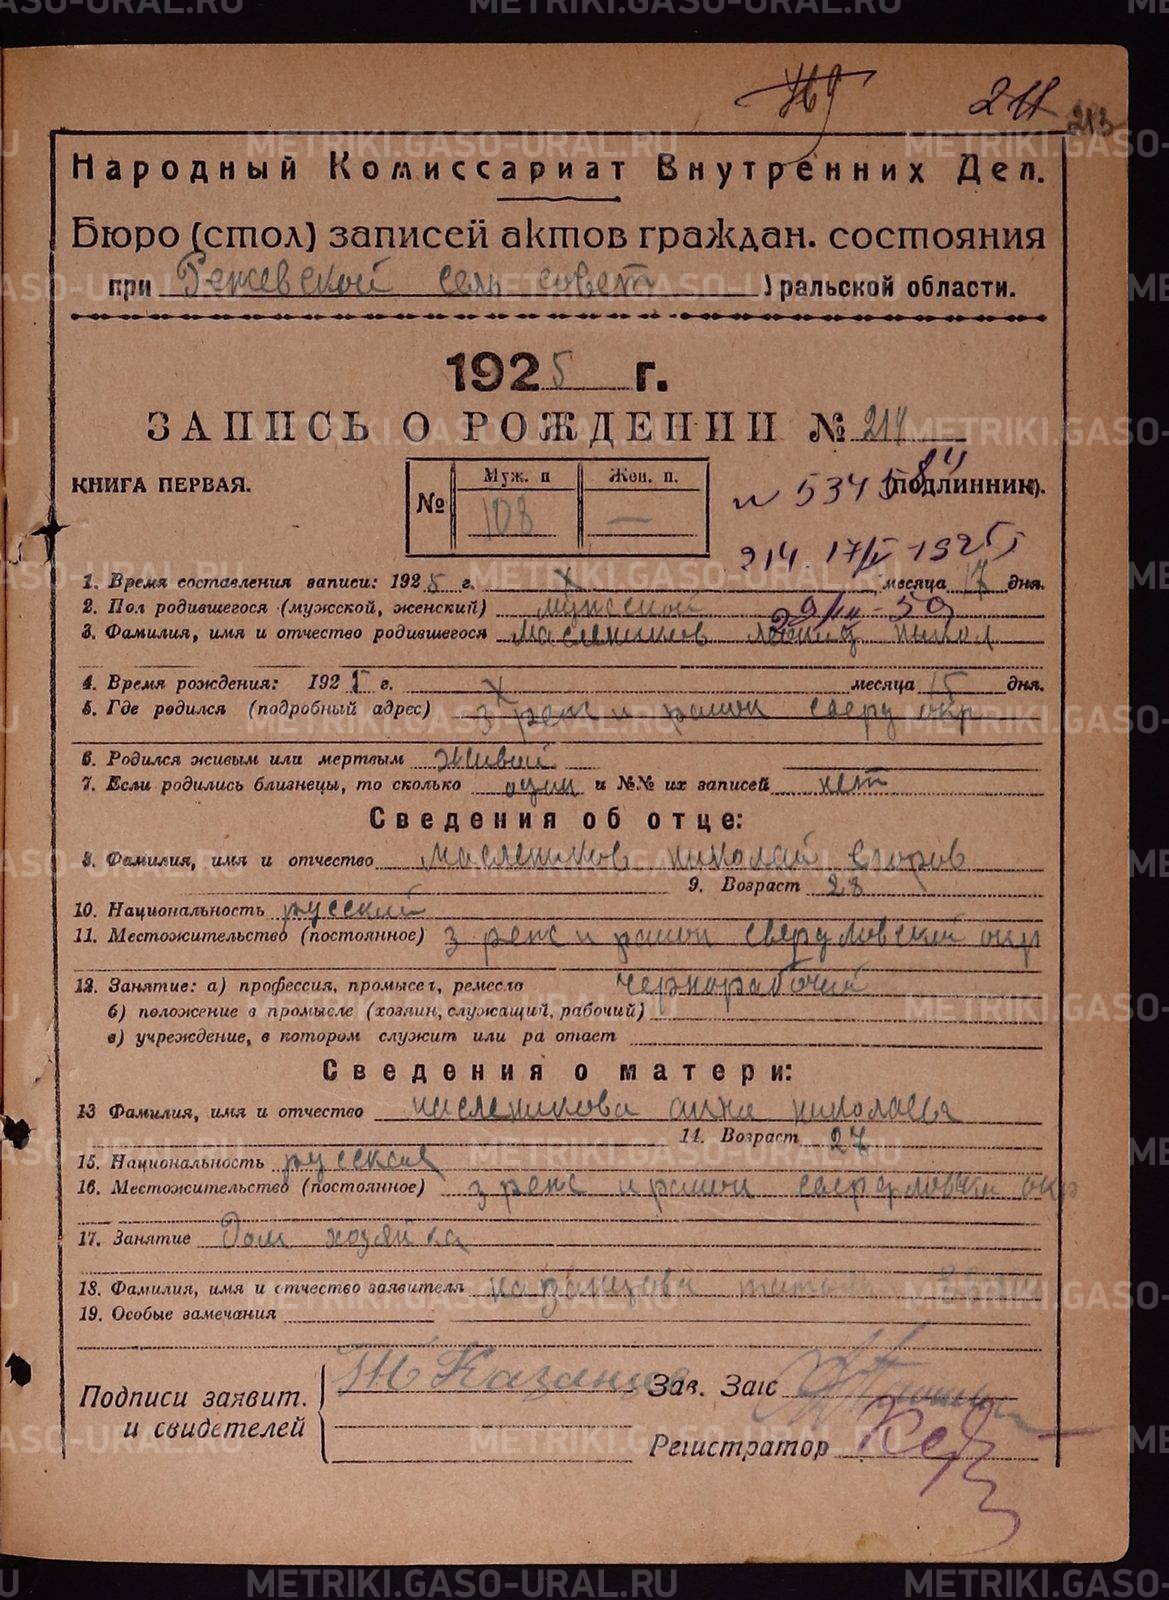 211
213
Народный Комиссариат Внутренних Дел.
Бюро (стол) записей актов граждан. состояния
при Режевской сель совет Уральской области.
1925 г.
ЗАПИСЬ О РОЖДЕНИИ № 214
КНИГА ПЕРВАЯ. (подлинник).
№ Муж. п Жен. п.
108 —
214. 17/X-1925
1. Время составления записи: 1925 г. X месяца 17 дня.
2. Пол родившегося (мужской, женский) мужской
3. Фамилия, имя и отчество родившегося Маслеников никол
4. Время рождения: 1925 г. X месяца 15 дня.
5. Где родился (подробный адрес) з реж и район сверд окр
6. Родился живым или мертвым живой
7. Если родились близнецы, то сколько один и №№ их записей нет
Сведения об отце:
8. Фамилия, имя и отчество Маслеников николай егоров
9. Возраст 28
10. Национальность русский
11. Местожительство (постоянное) з реж и район свердловский окр
12. Занятие: а) профессия, промысел, ремесло чернорабочий
б) положение в промысле (хозяин, служащий, рабочий)
в) учреждение, в котором служит или работает
Сведения о матери:
13 Фамилия, имя и отчество масленикова анна николаевна
14. Возраст 27
15. Национальность русская
16. Местожительство (постоянное) з реж и район свердловский окр
17. Занятие Дом хозяйка
18. Фамилия, имя и отчество заявителя казанцова
19. Особые замечания
Подписи заявит. и свидетелей
Зав. Загс
Регистратор
METRIKI.GASO-URAL.RU